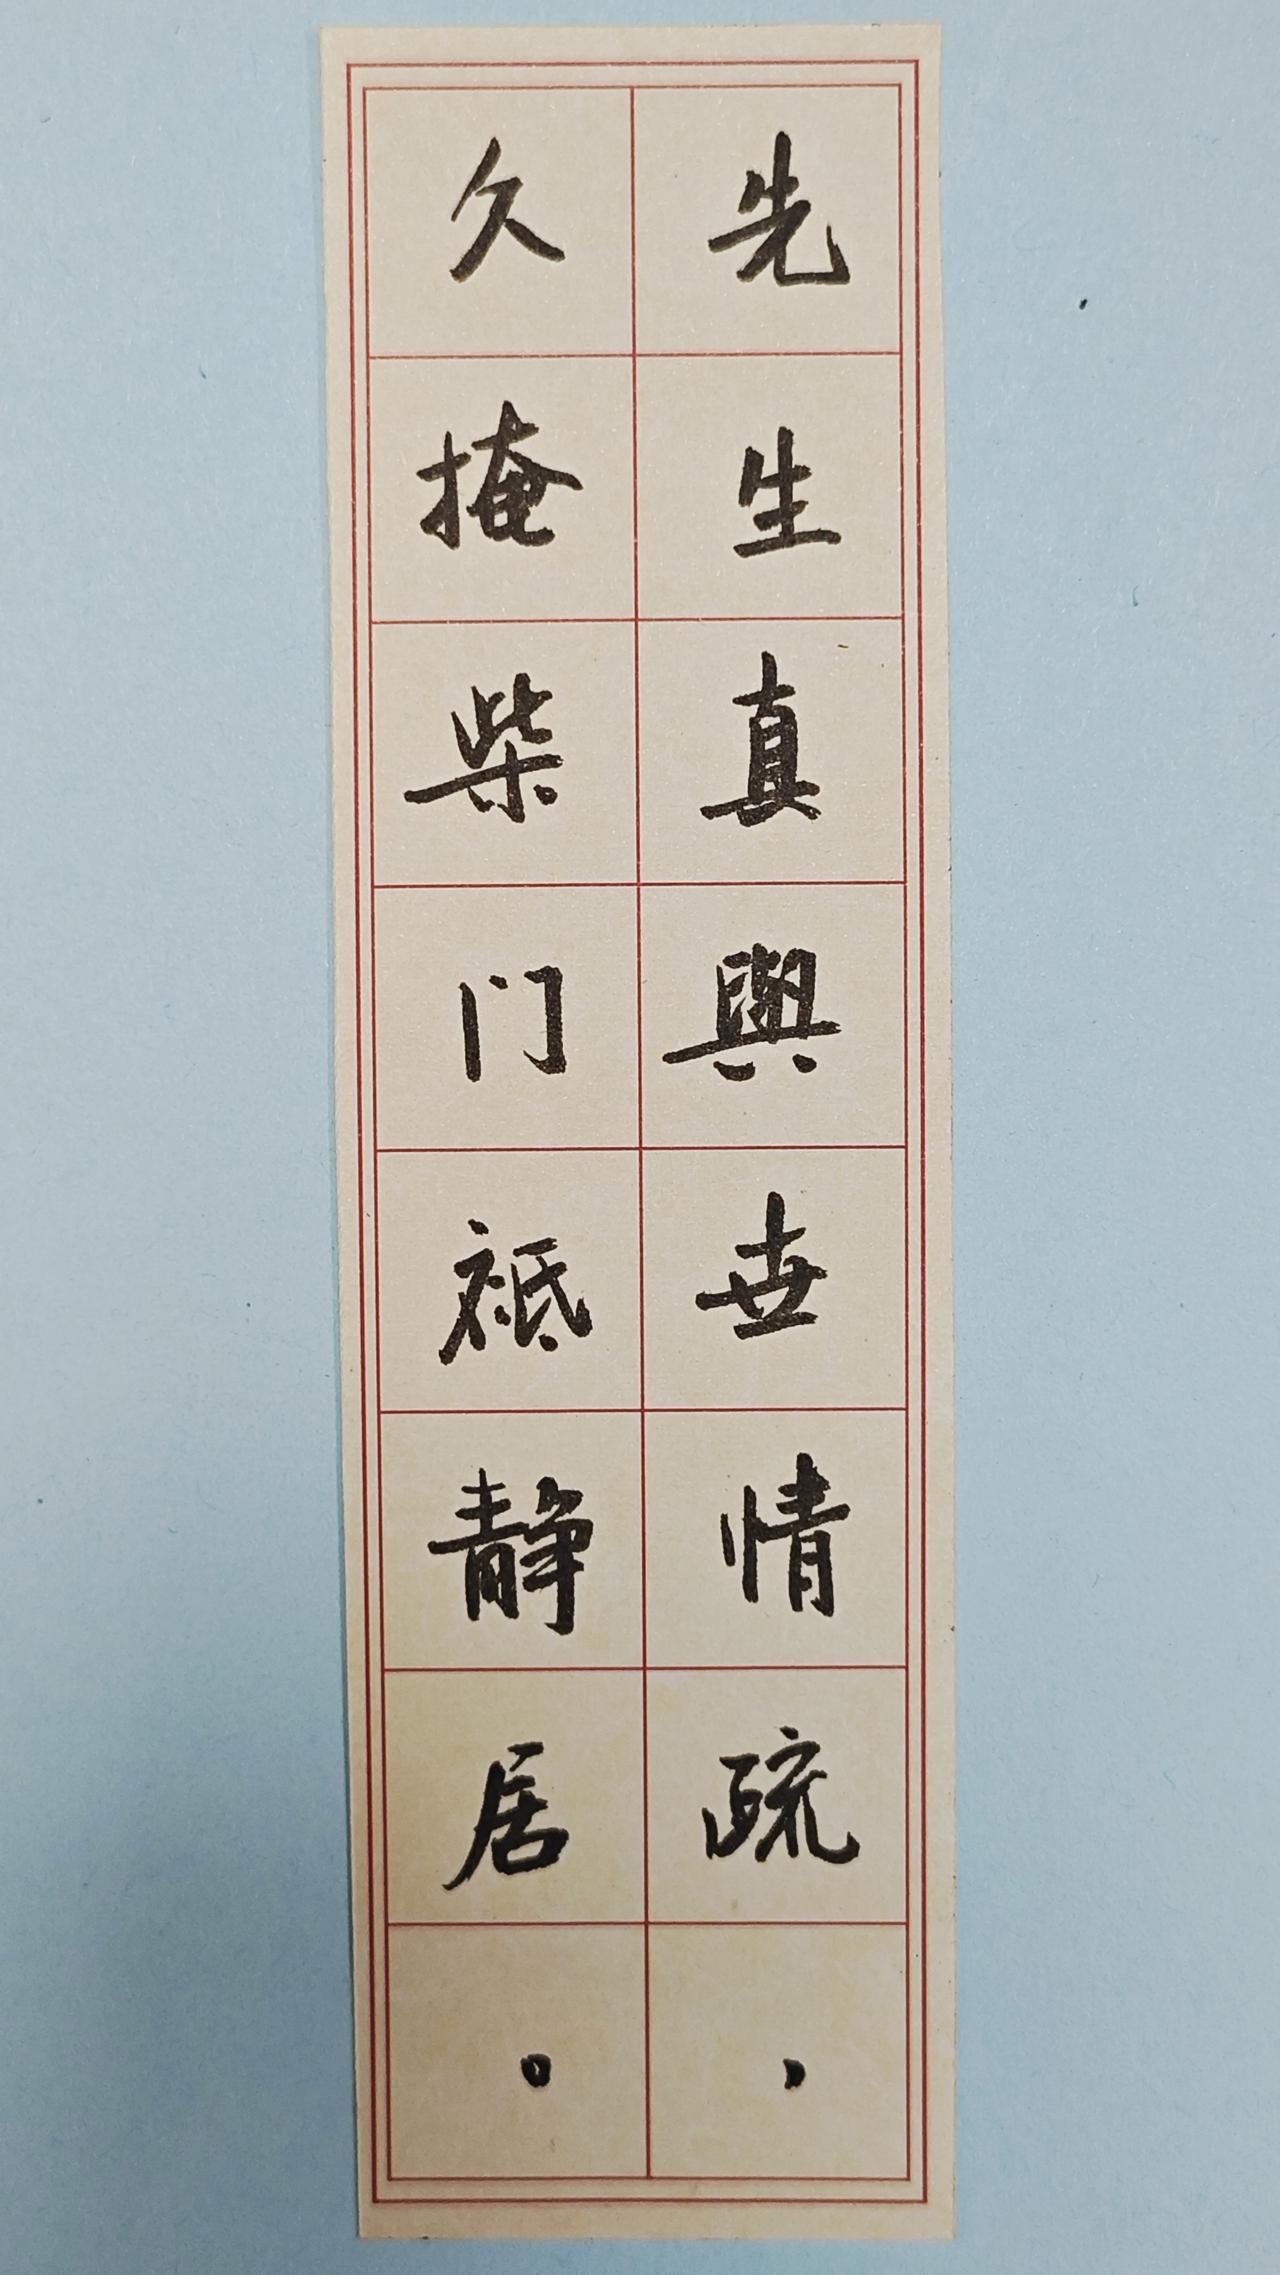 先生真與世情疏，
久掩柴门祗静居。